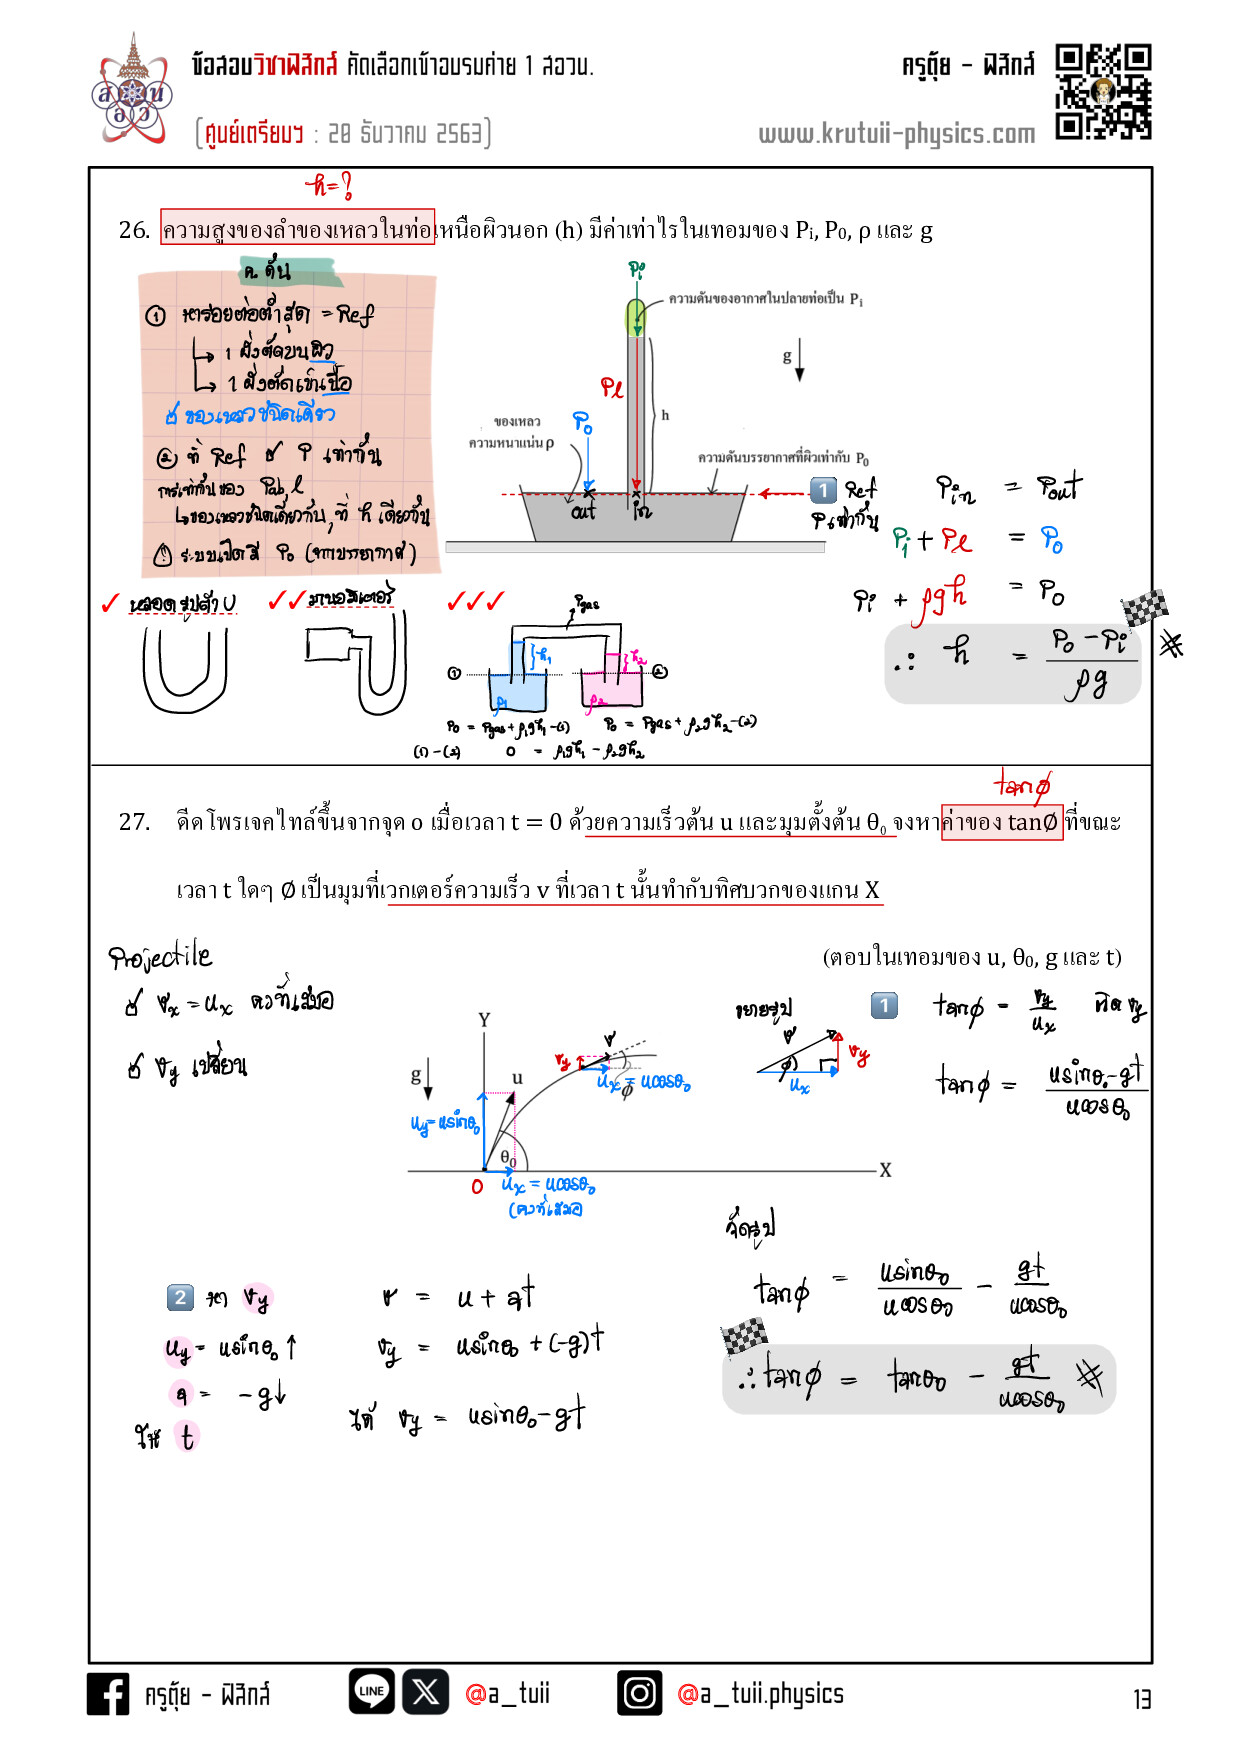 ข้อสอบวิชาฟิสิกส์ คัดเลือกเข้าอบรมค่าย 1 สอวน.
ครูตุ้ย - ฟิสิกส์
(ศูนย์เตรียมฯ : 20 ธันวาคม 2563)
www.krutuii-physics.com
h=?
26. ความสูงของลำของเหลวในท่อเหนือผิวนอก (h) มีค่าเท่าไรในเทอมของ Pi, P0, ρ และ g
ค. ดัน
① หารอยต่อต่ำสุด = Ref
↳ 1 ฝั่งตัดบนผิว
↳ 1 ฝั่งตัดเข้าเนื้อ
ของเหลวชนิดเดียว
② ที่ Ref P เท่ากัน
การเท่ากันของ Pab,l
↳ ของเหลวชนิดเดียวกัน, ที่ h เดียวกัน
ระบบเปิดมี P0 (จากบรรยากาศ)
Pi
ความดันของอากาศในปลายท่อเป็น Pi
g
Pl
h
P0
ของเหลว
ความหนาแน่น ρ
ความดันบรรยากาศที่ผิวเท่ากับ P0
out
in
1 Ref
P เท่ากัน
Pin = Pout
Pi + Pl = P0
Pi + ρgh = P0
∴ h = (P0 - Pi)/ρg
✓ หลอดรูปตัว U
✓✓ มานอมิเตอร์
✓✓✓
Pgas
① h1 h2 ②
ρ1 ρ2
P0 = Pgas + ρ1gh1 -(1)
P0 = Pgas + ρ2gh2 -(2)
(1)-(2) 0 = ρ1gh1 - ρ2gh2
tanϕ
27. ดีดโพรเจคไทล์ขึ้นจากจุด o เมื่อเวลา t = 0 ด้วยความเร็วต้น u และมุมตั้งต้น θ0 จงหาค่าของ tanØ ที่ขณะ
เวลา t ใดๆ Ø เป็นมุมที่เวกเตอร์ความเร็ว v ที่เวลา t นั้นทำกับทิศบวกของแกน X
(ตอบในเทอมของ u, θ0, g และ t)
Projectile
vx = ux คงที่เสมอ
vy เปลี่ยน
Y
g
u
v
vy
ux = ucosθ0
ϕ
uy = usinθ0
θ0
X
O
ux = ucosθ0
(คงที่เสมอ
ขยายรูป
v
vy
ϕ
ux
1 tanϕ = vy/ux ติด vy
tanϕ = (usinθ0 - gt)/ucosθ0
จัดรูป
tanϕ = usinθ0/ucosθ0 - gt/ucosθ0
∴ tanϕ = tanθ0 - gt/ucosθ0
2 หา vy
uy = usinθ0 ↑
a = -g↓
ให้ t
v = u + at
vy = usinθ0 + (-g)t
ได้ vy = usinθ0 - gt
ครูตุ้ย - ฟิสิกส์
LINE
@a_tuii
@a_tuii.physics
13